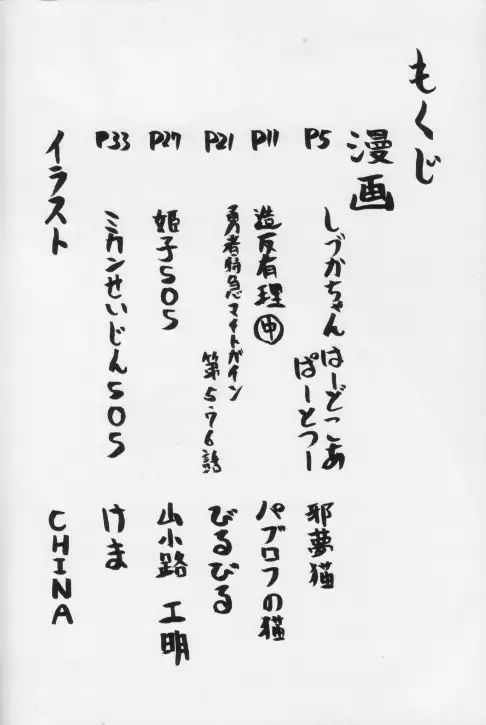 もくじ
漫画
P5 しづかちゃん はーどっこあ ぱーとつー 邪夢猫
P11 造反有理㊥ パブロフの猫
P21 勇者特急マイトガイン 第5.76話 びるびる
P27 姫子SOS 山小路 工明
P33 ミカンせいじんSOS けま
イラスト CHINA